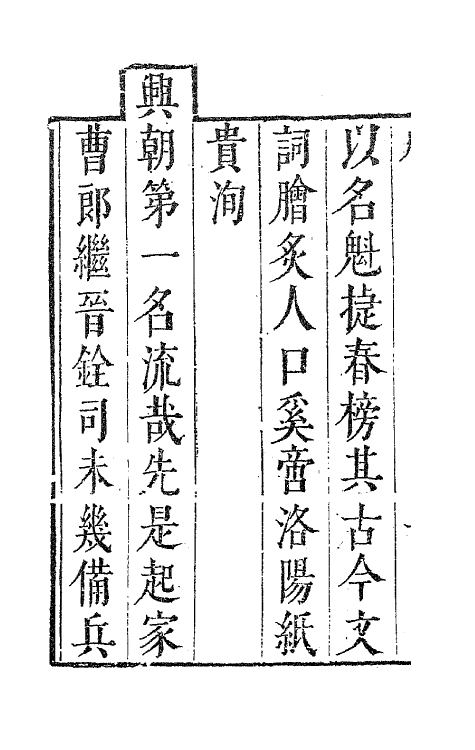 以名魁捷春榜其古今文
詞膾炙人口奚啻洛陽紙
貴洵
興朝第一名流哉先是起家
曹郎繼晉銓司未幾備兵